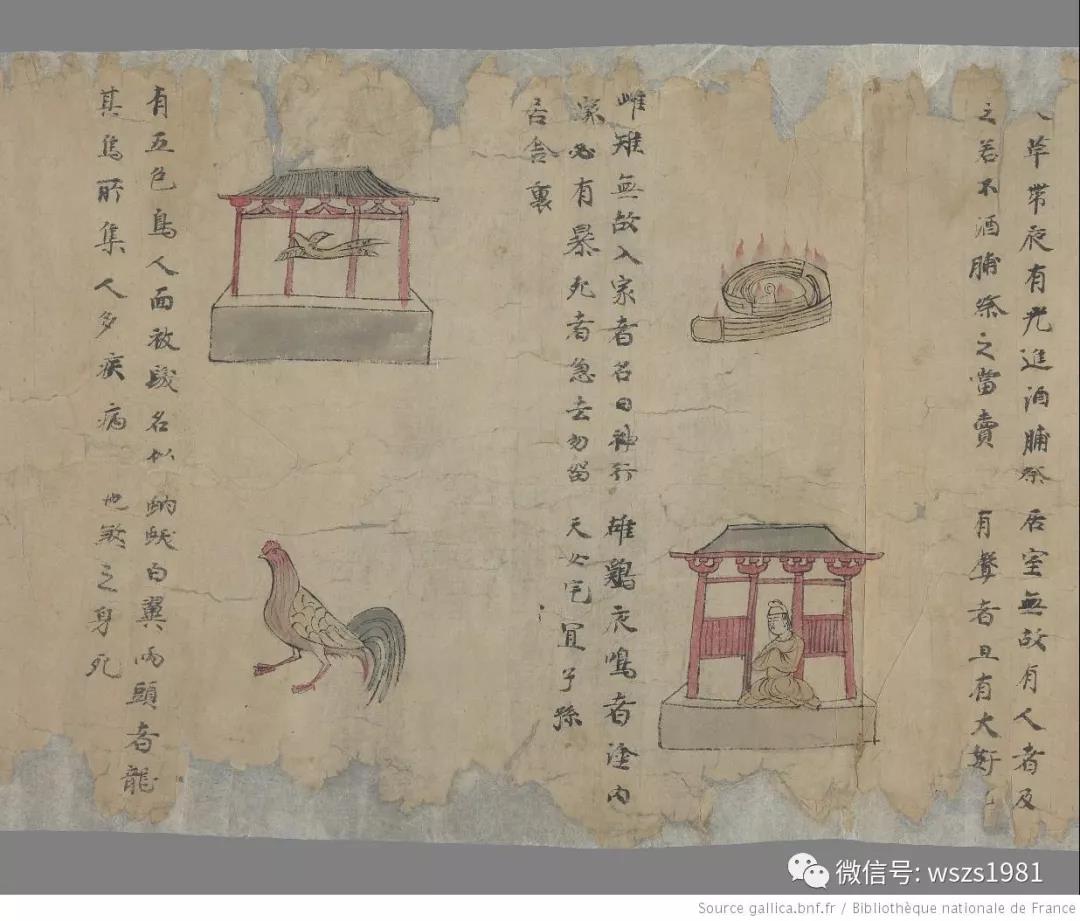 草帶夜有光進酒脯祭
之若不酒脯祭之當賣
居室無故有人者及
有聲者且有大
雌雉無故入家者名曰神行
家必有暴死者急去勿留
居舍裏
雄鷄夜鳴者塗內
天必宅宜子孫
有五色鳥人面被髮名
其鳥所集人多疾病
白翼兩頭者龍
也煞之身死
微信号: wszs1981
Source gallica.bnf.fr / Bibliothèque nationale de France